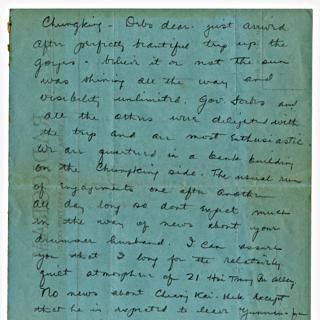 Chungking - Orbo dear. just arrived
after perfectly beautiful trip up the
gorges - believe it or not the sun
was shining all the way and
visibility unlimited. Gov. Forbes and
all the others were delighted with
the trip and are most enthusiastic
We are quartered in a bank building
on the Chungking side. The usual run
of engagements one after another
all day long so dont expect much
in the way of news about your
drummer husband. I can assure
you that I long for the relatively
quiet atmosphere of 21 Hsi Tsung Pu Alley
No news about Chiang Kai-shek except
that he is expected to leave